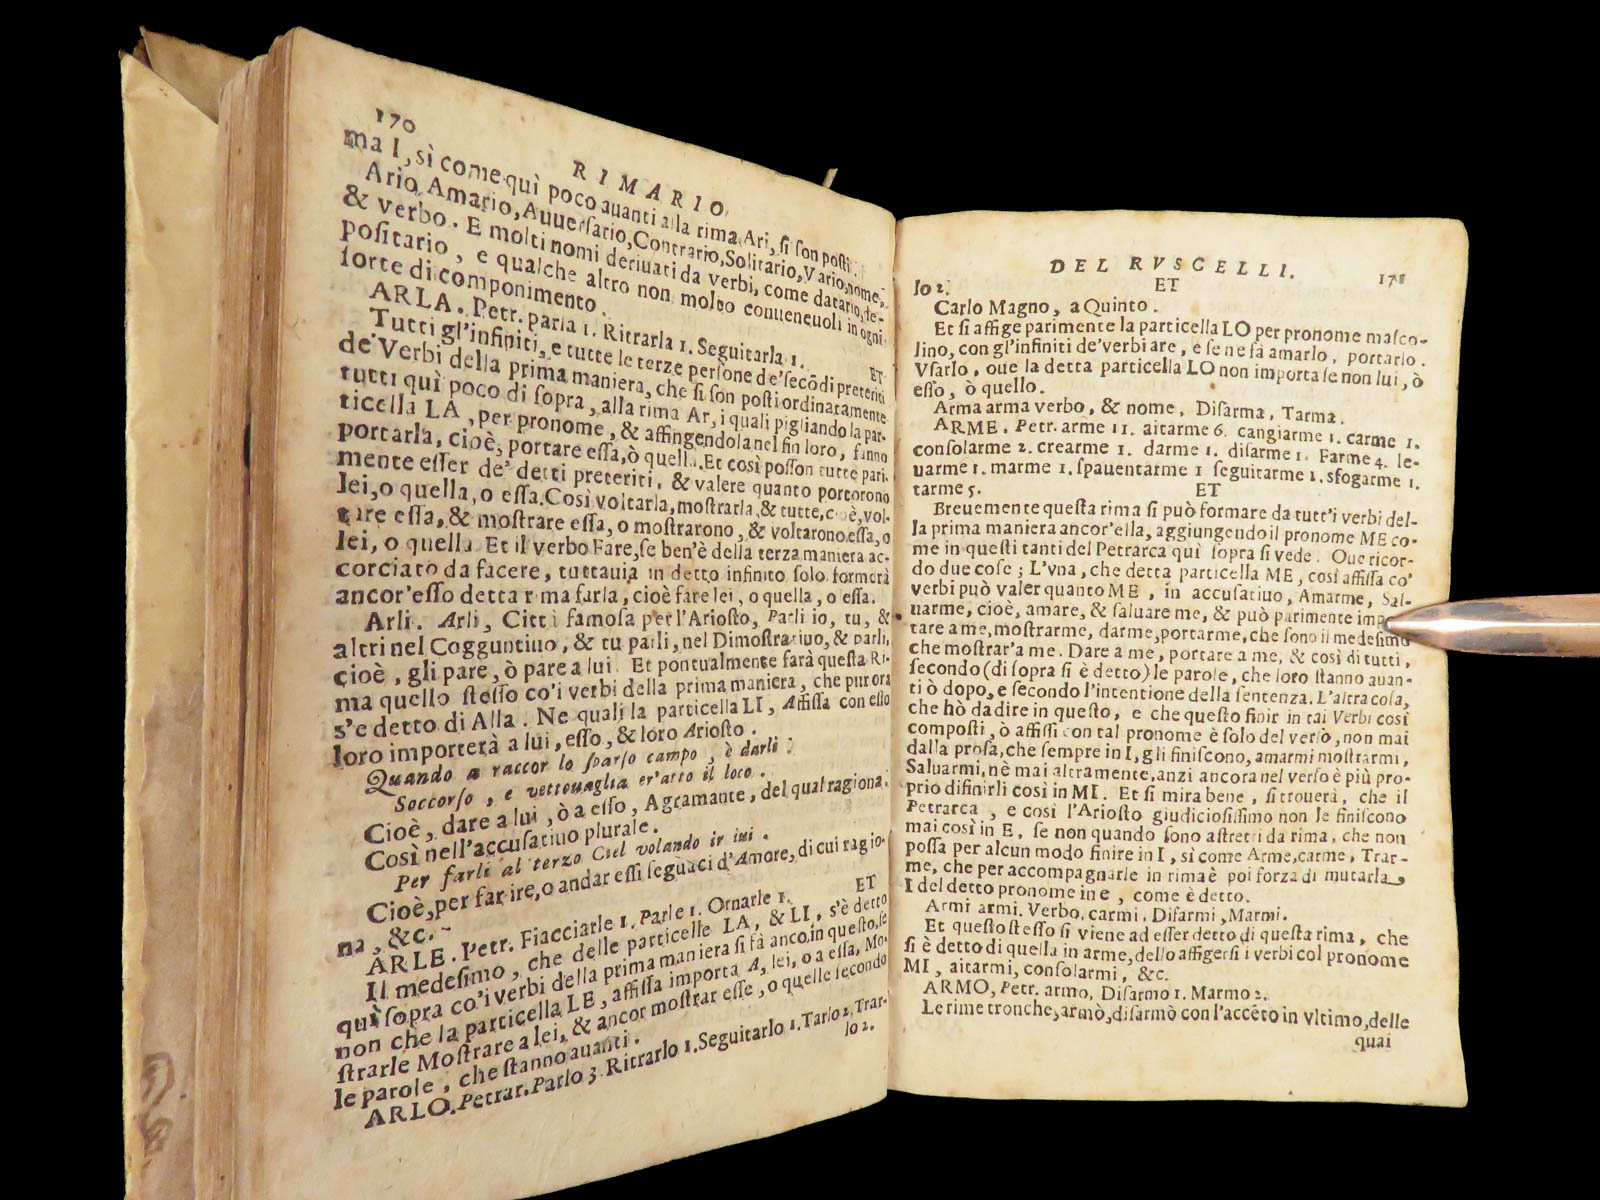 170
RIMARIO
ma I, sì come quì poco auanti alla rima Ari, si son posti.
Ario, Amario, Auuersario, Contrario, Solitario, Vario, nome,
& verbo. E molti nomi deriuati da verbi, come datario, de-
positario, e qualche altro non molto conueneuoli in ogni
sorte di componimento.
ARLA. Petr. parla 1. Ritrarla 1. Seguitarla 1. ET
Tutti gl'infiniti, e tutte le terze persone de'secõdi preteriti
de' Verbi della prima maniera, che si son posti ordinatamente
tutti quì poco di sopra, alla rima Ar, i quali pigliando la par-
ticella LA, per pronome, & affingendola nel fin loro, fanno
portarla, cioè, portare essa, ò quella. Et così posson tutte pari-
mente esser de' detti preteriti, & valere quanto portorono
lei, o quella, o essa. Così voltarla, mostrarla, & tutte, cioè, vol-
tare essa, & mostrare essa, o mostrarono, & voltarono essa, o
lei, o quella Et il verbo Fare, se ben'è della terza maniera ac-
corciato da facere, tuttauia in detto infinito solo formerà
ancor'esso detta rima farla, cioè fare lei, o quella, o essa.
Arli. Arli, Città famosa per l'Ariosto, Parli io, tu, &
altri nel Cogguntiuo, & tu parli, nel Dimostratiuo, & parli,
cioè, gli pare, ò pare a lui. Et pontualmente farà questa Ri-
ma quello stesso co'i verbi della prima maniera, che pur ora
s'e detto di Alla. Ne quali la particella LI, Affissa con esso
loro importerà a lui, esso, & loro Ariosto.
Quando a raccor lo sparso campo, è darli:
Soccorso, e vettouaglia er'atto il loco.
Cioè, dare a lui, ò a esso, Agramante, del qual ragiona.
Così nell'accusatiuo plurale.
Per farli al terzo Ciel volando ir iui.
Cioè, per far ire, o andar essi seguaci d'Amore, di cui ragio-
na, &c.
ARLE. Petr. Fiacciarle 1. Parle 1. Ornarle 1. ET
Il medesimo, che delle particelle LA, & LI, s'è detto
quì sopra co'i verbi della prima maniera si fà anco in questo, se
non che la particella LE, affissa importa A, lei, o a essa, Mo-
strarle Mostrare a lei, & ancor mostrar esse, o quelle secondo
le parole, che stanno auanti.
ARLO. Petrar. Parlo 3 Ritrarlo 1. Seguitarlo 1. Tarlo 2. Trar-
lo 2.
DEL RVSCELLI. 171
lo 2. ET
Carlo Magno, a Quinto.
Et si affige parimente la particella LO per pronome masco-
lino, con gl'infiniti de'verbi are, e se ne fà amarlo, portarlo.
Vsarlo, oue la detta particella LO non importa se non lui, ò
esso, ò quello.
Arma arma verbo, & nome, Disarma, Tarma.
ARME. Petr. arme 11. aitarme 6. cangiarme 1. carme 1.
consolarme 2. crearme 1. darme 1. disarme 1. Farme 4. le-
uarme 1. marme 1. spauentarme 1 seguitarme 1. sfogarme 1.
tarme 5. ET
Breuemente questa rima si può formare da tutt'i verbi del-
la prima maniera ancor'ella, aggiungendo il pronome ME co-
me in questi tanti del Petrarca quì sopra si vede. Oue ricor-
do due cose; L'vna, che detta particella ME, così affissa co'
verbi può valer quanto ME, in accusatiuo, Amarme, Sal-
uarme, cioè, amare, & saluare me, & può parimente imp
tare a me, mostrarme, darme, portarme, che sono il medesimo
che mostrar'a me. Dare a me, portare a me, & così di tutti,
secondo (di sopra si è detto) le parole, che loro stanno auan-
ti ò dopo, e secondo l'intentione della sentenza. L'altra cosa,
che hò da dire in questo, e che questo finir in tai Verbi così
composti, ò affissi con tal pronome è solo del verso, non mai
dalla prosa, che sempre in I, gli finiscono, amarmi mostrarmi,
Saluarmi, nè mai altramente, anzi ancora nel verso è più pro-
prio difinirli così in MI. Et si mira bene, si trouerà, che il
Petrarca, e così l'Ariosto giudiciosissimo non le finiscono
mai così in E, se non quando sono astretti da rima, che non
possa per alcun modo finire in I, si come Arme, carme, Trar-
me, che per accompagnarle in rima è poi forza di mutarla,
I del detto pronome in e, come è detto.
Armi armi. Verbo, carmi, Disarmi, Marmi.
Et questo stesso si viene ad esser detto di questa rima, che
si è detto di quella in arme, dello affigersi i verbi col pronome
MI, aitarmi, consolarmi, &c.
ARMO, Petr. armo, Disarmo 1. Marmo 2.
Le rime tronche, armò, disarmò con l'accẽto in vltimo, delle
quai